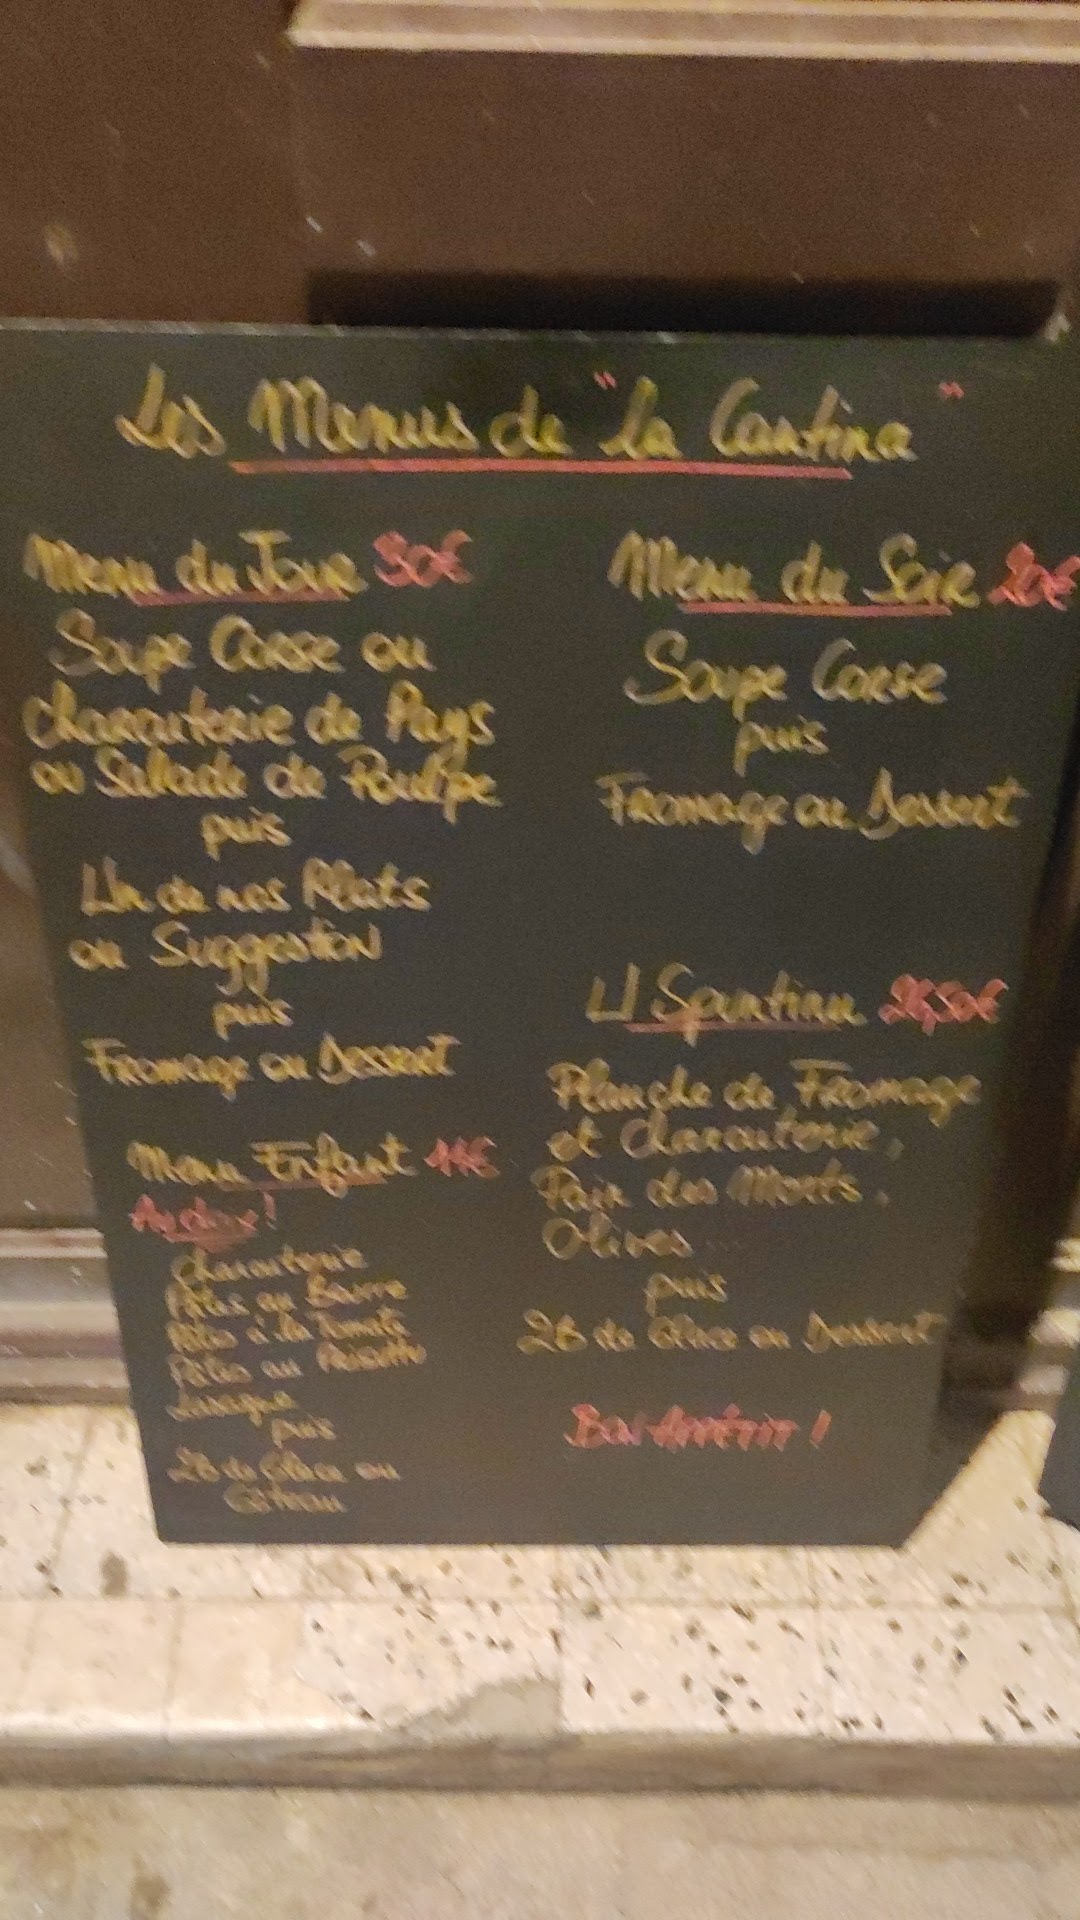 Les Menus de "la Cantina"
Menu du Jour 30€
Soupe Corse ou
charcuterie de Pays
ou Salade de Poulpe
puis
Un de nos Plats
ou Suggestion
puis
Fromage ou Dessert
Menu Enfant 11€
Au choix!
charcuterie
Pâtes au Beurre
Pâtes à la Tomate
Pâtes au
puis
2B de Glace ou
Gâteau
Menu du Soir 20€
Soupe Corse
puis
Fromage ou Dessert
U Spuntinu
Planche de Fromage
et charcuterie,
Pain des Morts,
Olives ...
puis
2B de Glace ou Dessert
Bon Appétit !